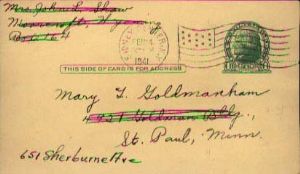 Mrs. John L. Shaw
Moorcroft, Wyoming
FEB
1941
THIS SIDE OF CARD IS FOR ADDRESS
Mary F. Goldmanham
Bldg.,
St. Paul, Minn.
651 Sherburne Ave